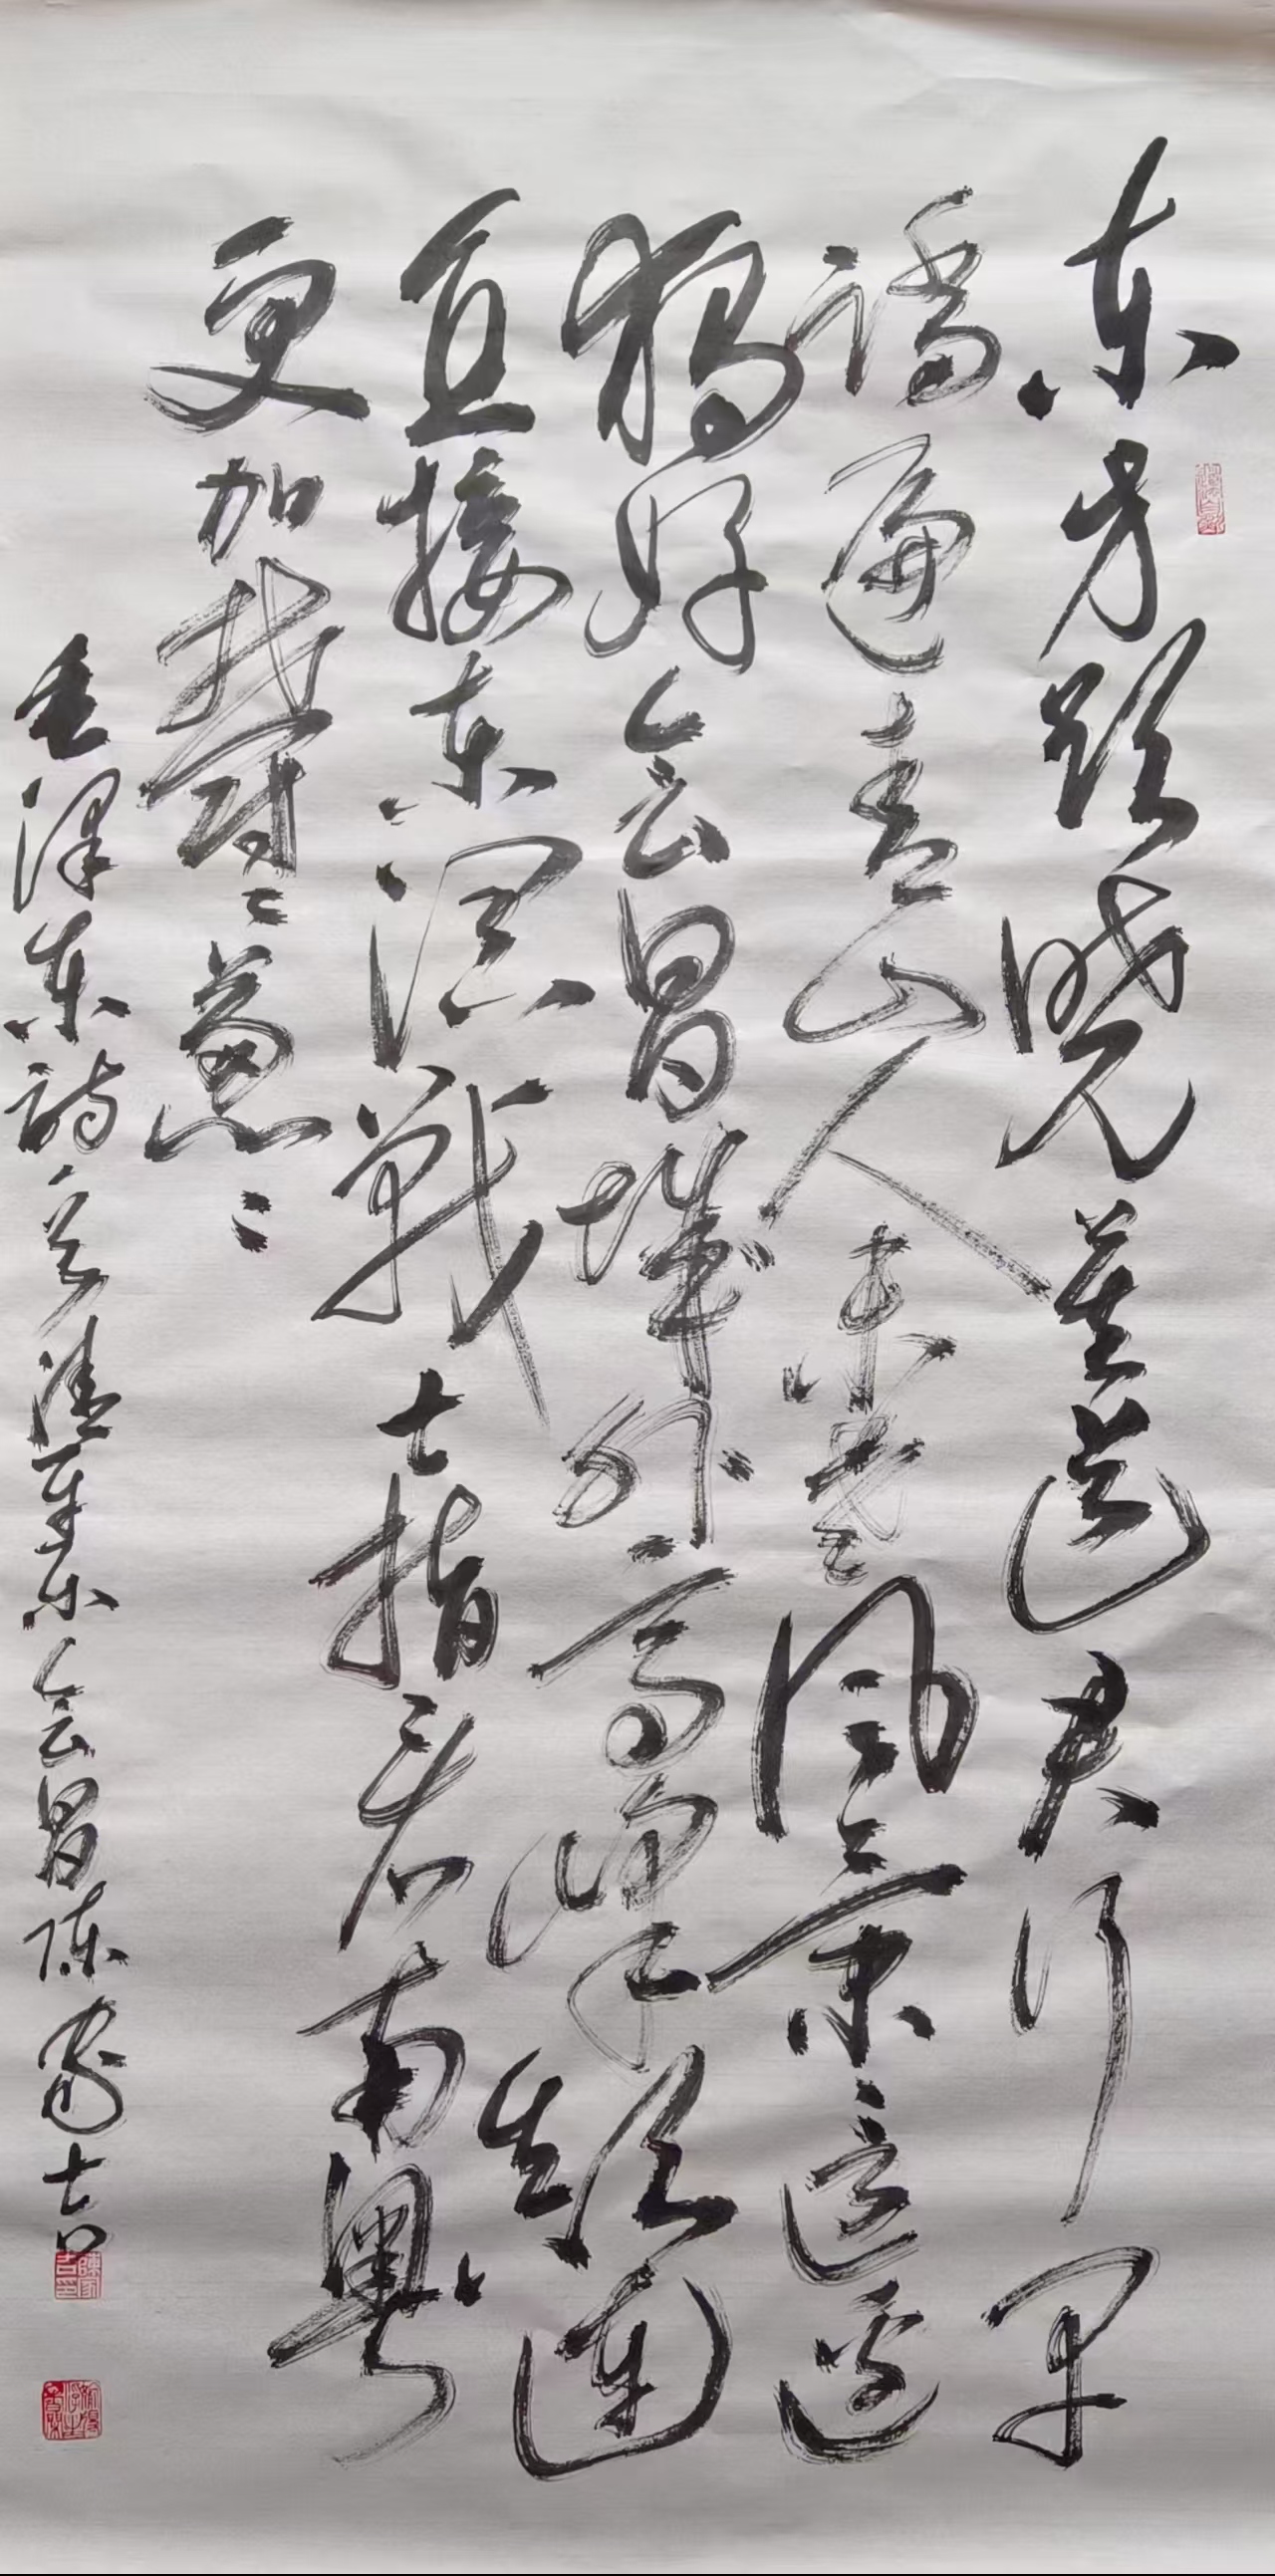 东方欲晓莫道君行早
踏遍青山人未老风景这边
独好会昌城外高峰颠连
直接东溟战士指看南粤
更加郁々葱々
毛泽东诗之清平乐会昌陈家吉
陈家吉印